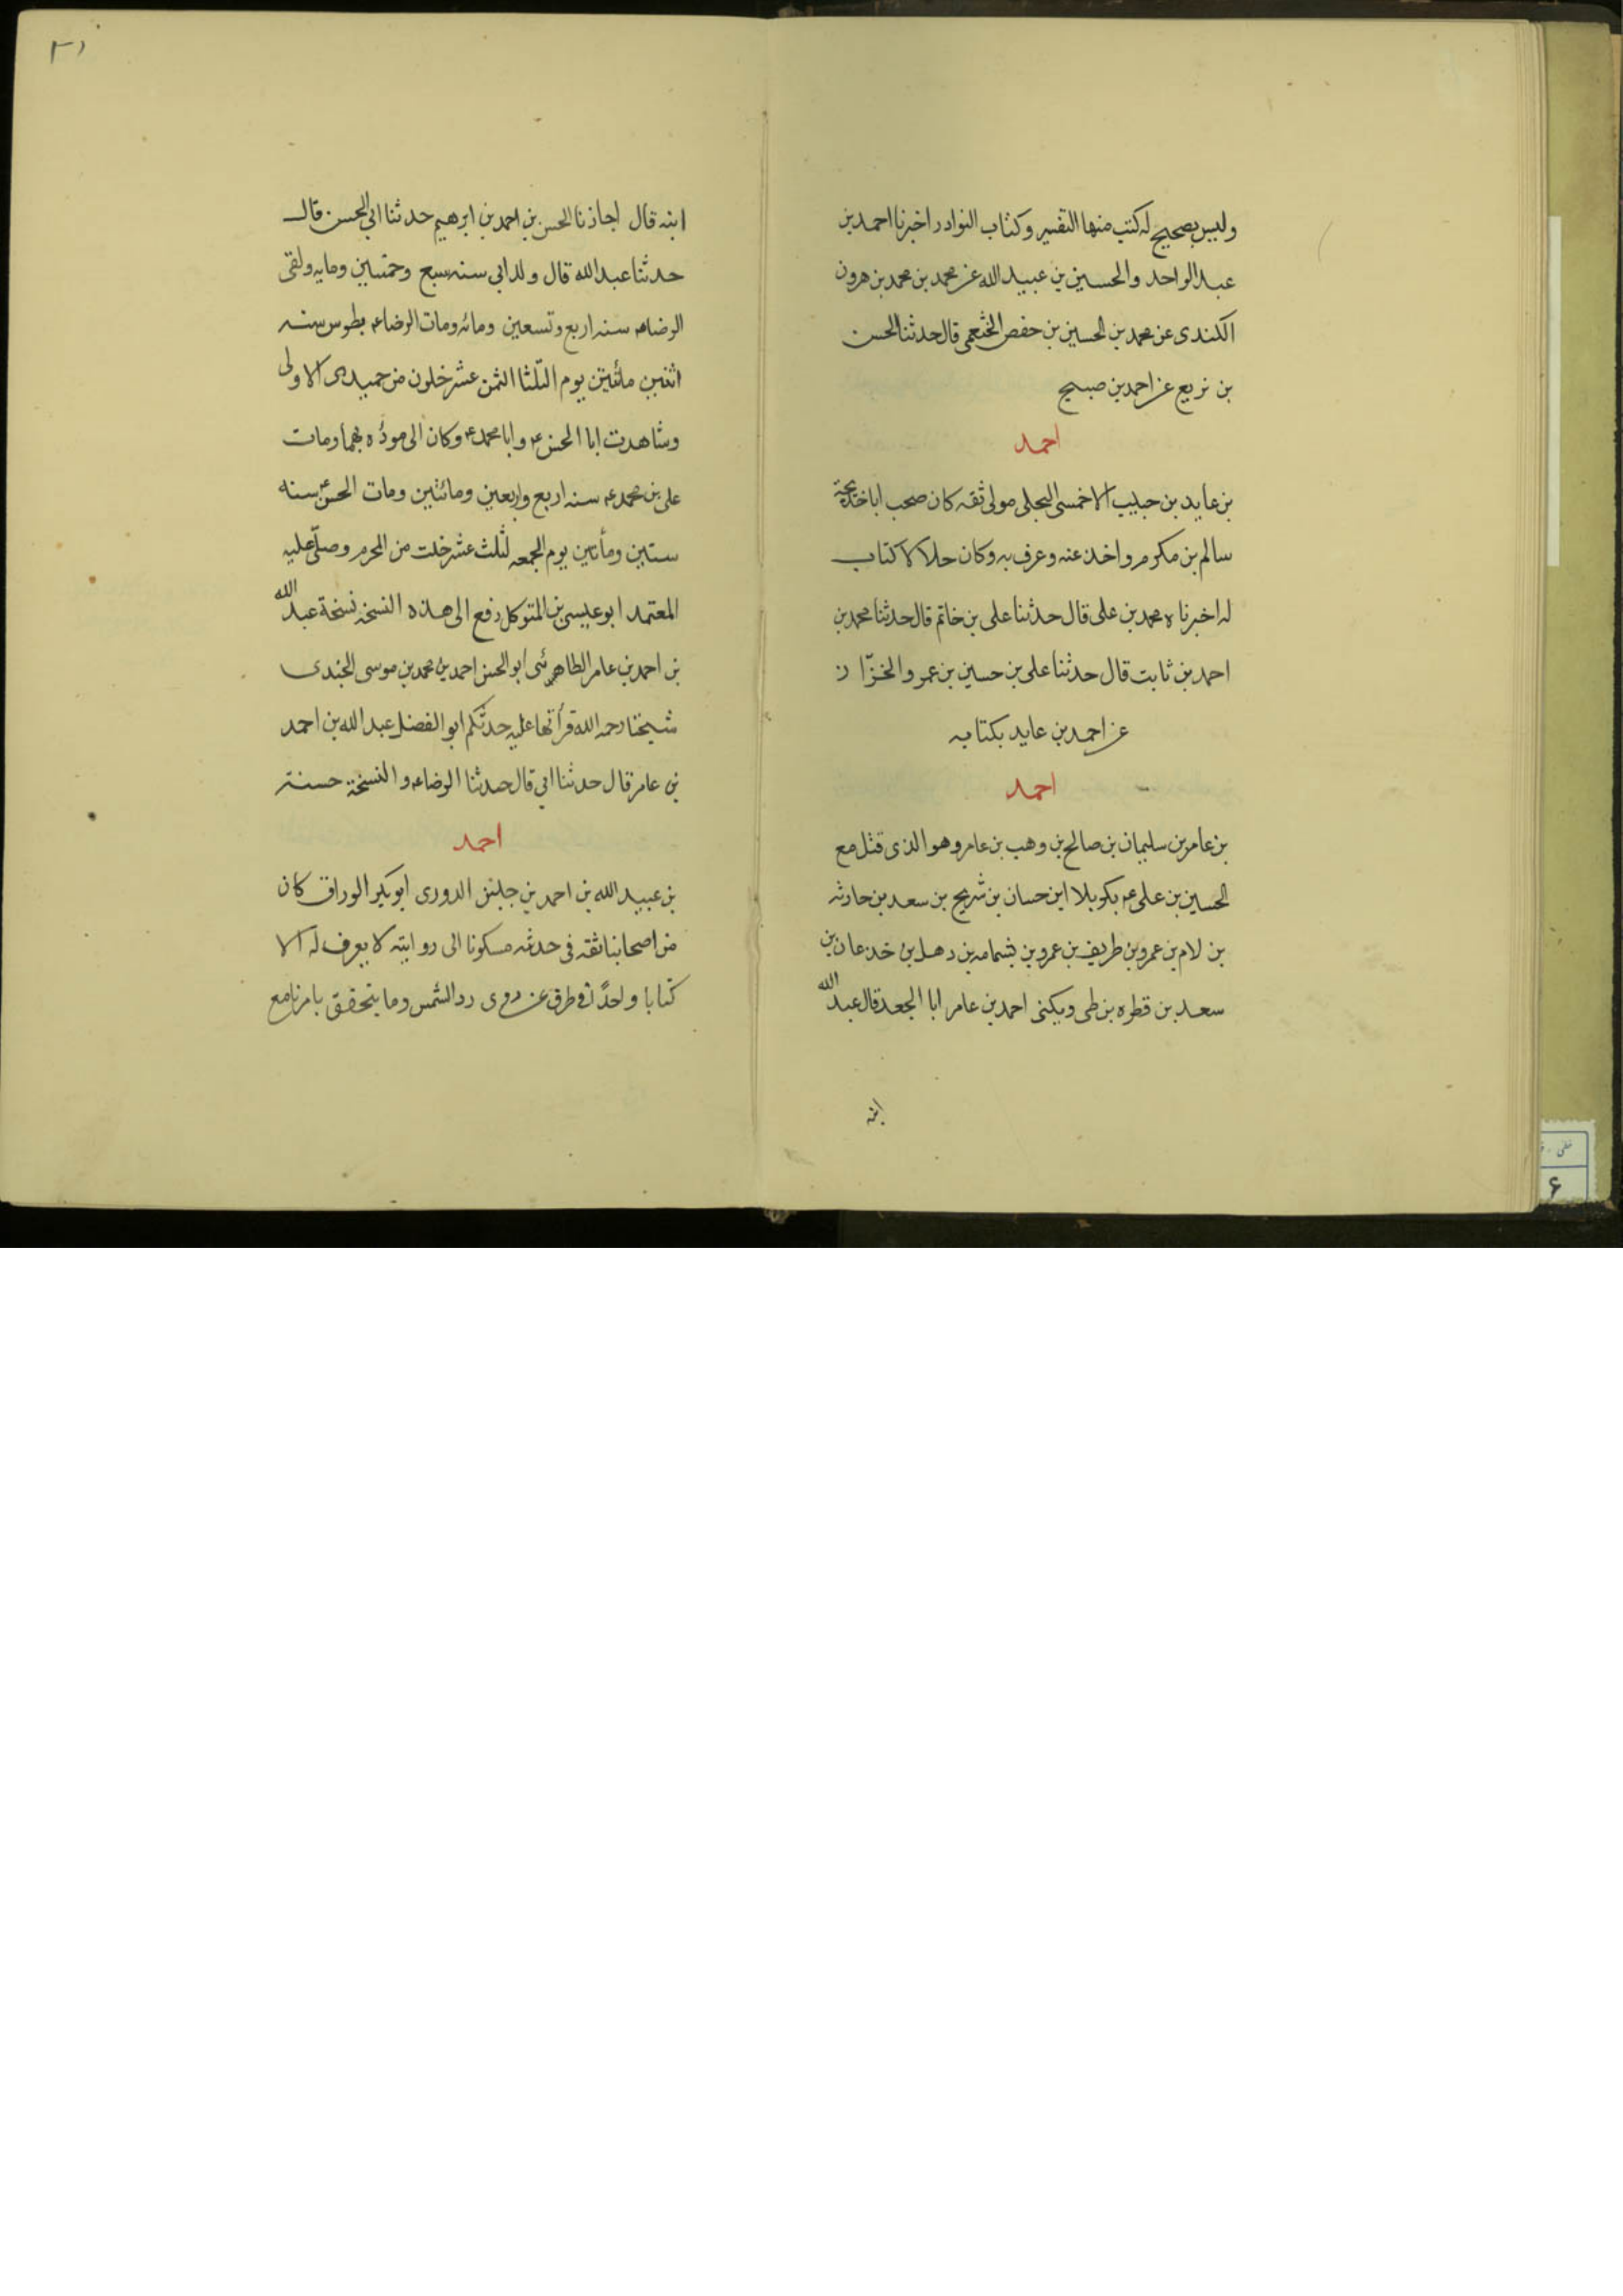 وليس بصحيح له كتب منها التفسير وكتاب النوادر اخبرنا احمد بن
عبد الواحد والحسين بن عبيد الله عن محمد بن محمد بن هرون
الكندى عن محمد بن الحسين بن حفص الخثعمى قال حدثنا الحسن
بن نريع عن احمد بن صبيح
احمد
بن عايد بن حبيب الاخمسى البجلى مولى ثقه كان صحب ابا خديجة
سالم بن مكرم واخذ عنه وعرف به وكان حلالا كتاب
له اخبرناه محمد بن على قال حدثنا على بن خاتم قال حدثنا محمد بن
احمد بن ثابت قال حدثنا على بن حسين بن عمرو الخزّاز
عن احمد بن عايد بكتابه
احمد
بن عامر بن سليمان بن صالح بن وهب بن عامر وهو الذى قتل مع
الحسين بن على عم بكربلا ابن حسان بن شريح بن سعد بن حارثه
بن لام بن عمرو بن طريف بن عمرو بن بثمامه بن دهل بن خدعان بن
سعد بن قطره بن طى ويكنى احمد بن عامر ابا الجعد قال عبد الله
ابنه
٣١
ابنه قال اجازنا الحسن بن احمد بن ابرهيم حدثنا ابى الحسن قال
حدثنا عبد الله قال ولد ابى سنه سبع وخمسين ومايه ولقى
الرضاءم سنه اربع وتسعين ومائه ومات الرضاءم بطوس سنه
اثنين مائتين يوم الثلثا الثمن عشر خلون من جميدى الاولى
وشاهدت ابا الحسن عم وابا محمد عم وكان الى موذه بهما ومات
على بن محمد عم سنه اربع واربعين ومائتين ومات الحسن عم سنه
ستين ومأتين يوم الجمعه لثلث عشر خلت من المحرم وصلّى عليه
المعتمد ابو عيسى بن المتوكل رفع الى هذه النسخه نسخة عبد الله
بن احمد بن عامر الطاهرئى ابو الحسن احمد بن محمد بن موسى الجندى
شيخنا رحمه الله قرأتها عليه حدثكم ابو الفضل عبد الله بن احمد
بن عامر قال حدثنا ابى قال حدثنا الرضاءم والنسخة حسنة
احمد
بن عبيد الله بن احمد بن جلين الدورى ابو بكر الوراق كان
من اصحابنا ثقه فى حدثه مسكونا الى روايته لا يعرف له الا
كتابا واحدًا فى طرق من روى رد الشمس وما يتحقق بامرنا مع